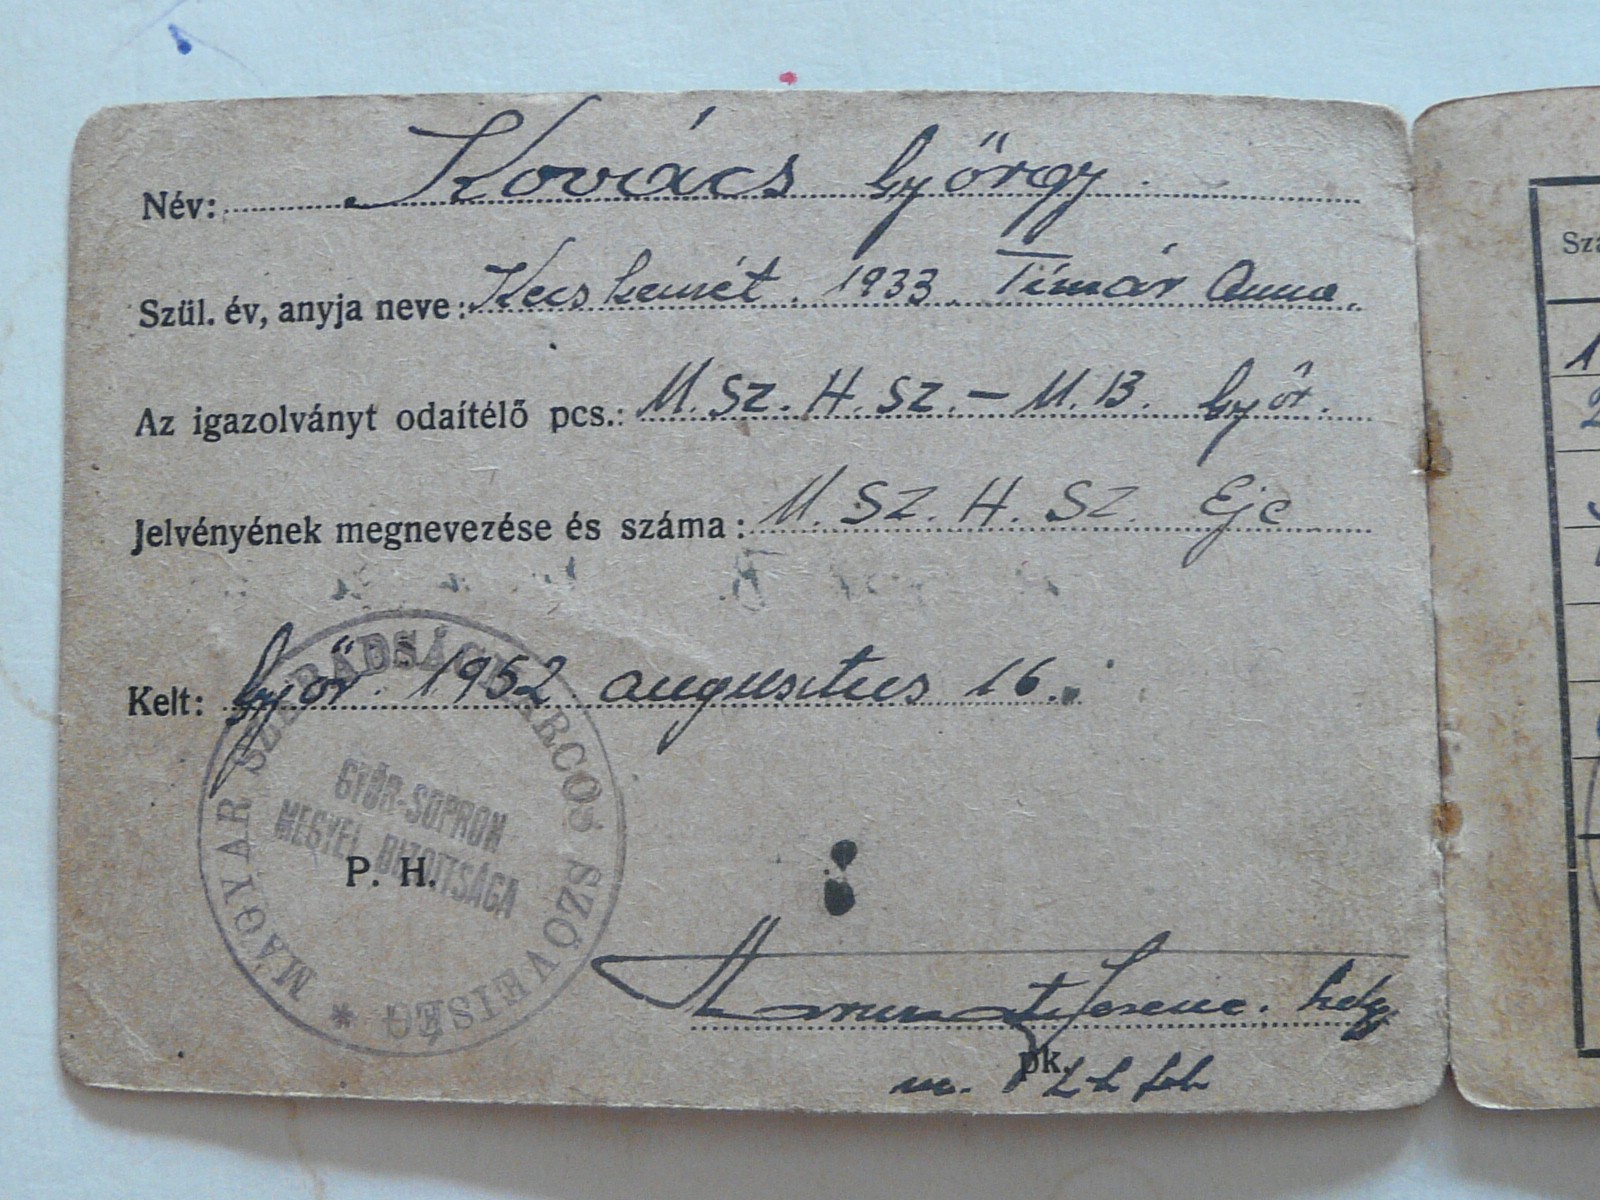 Név: Kovács György
Szül. év, anyja neve: Kecskemét. 1933. Tímár Anna.
Az igazolványt odaítélő pcs.: M. SZ. H. SZ. – M. B. Győr.
Jelvényének megnevezése és száma: M. SZ. H. SZ. Éjc
Kelt: Győr. 1952. augusztus 16.
MAGYAR SZABADSÁGHARCOS SZÖVETSÉG *
GYŐR-SOPRON
MEGYEI BIZOTTSÁGA
P. H.
Ferenc. hely
pk.
Szá